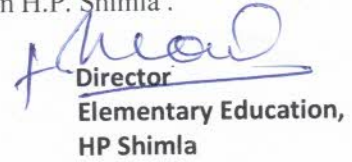 n H.P. Shimla .
Director
Elementary Education,
HP Shimla